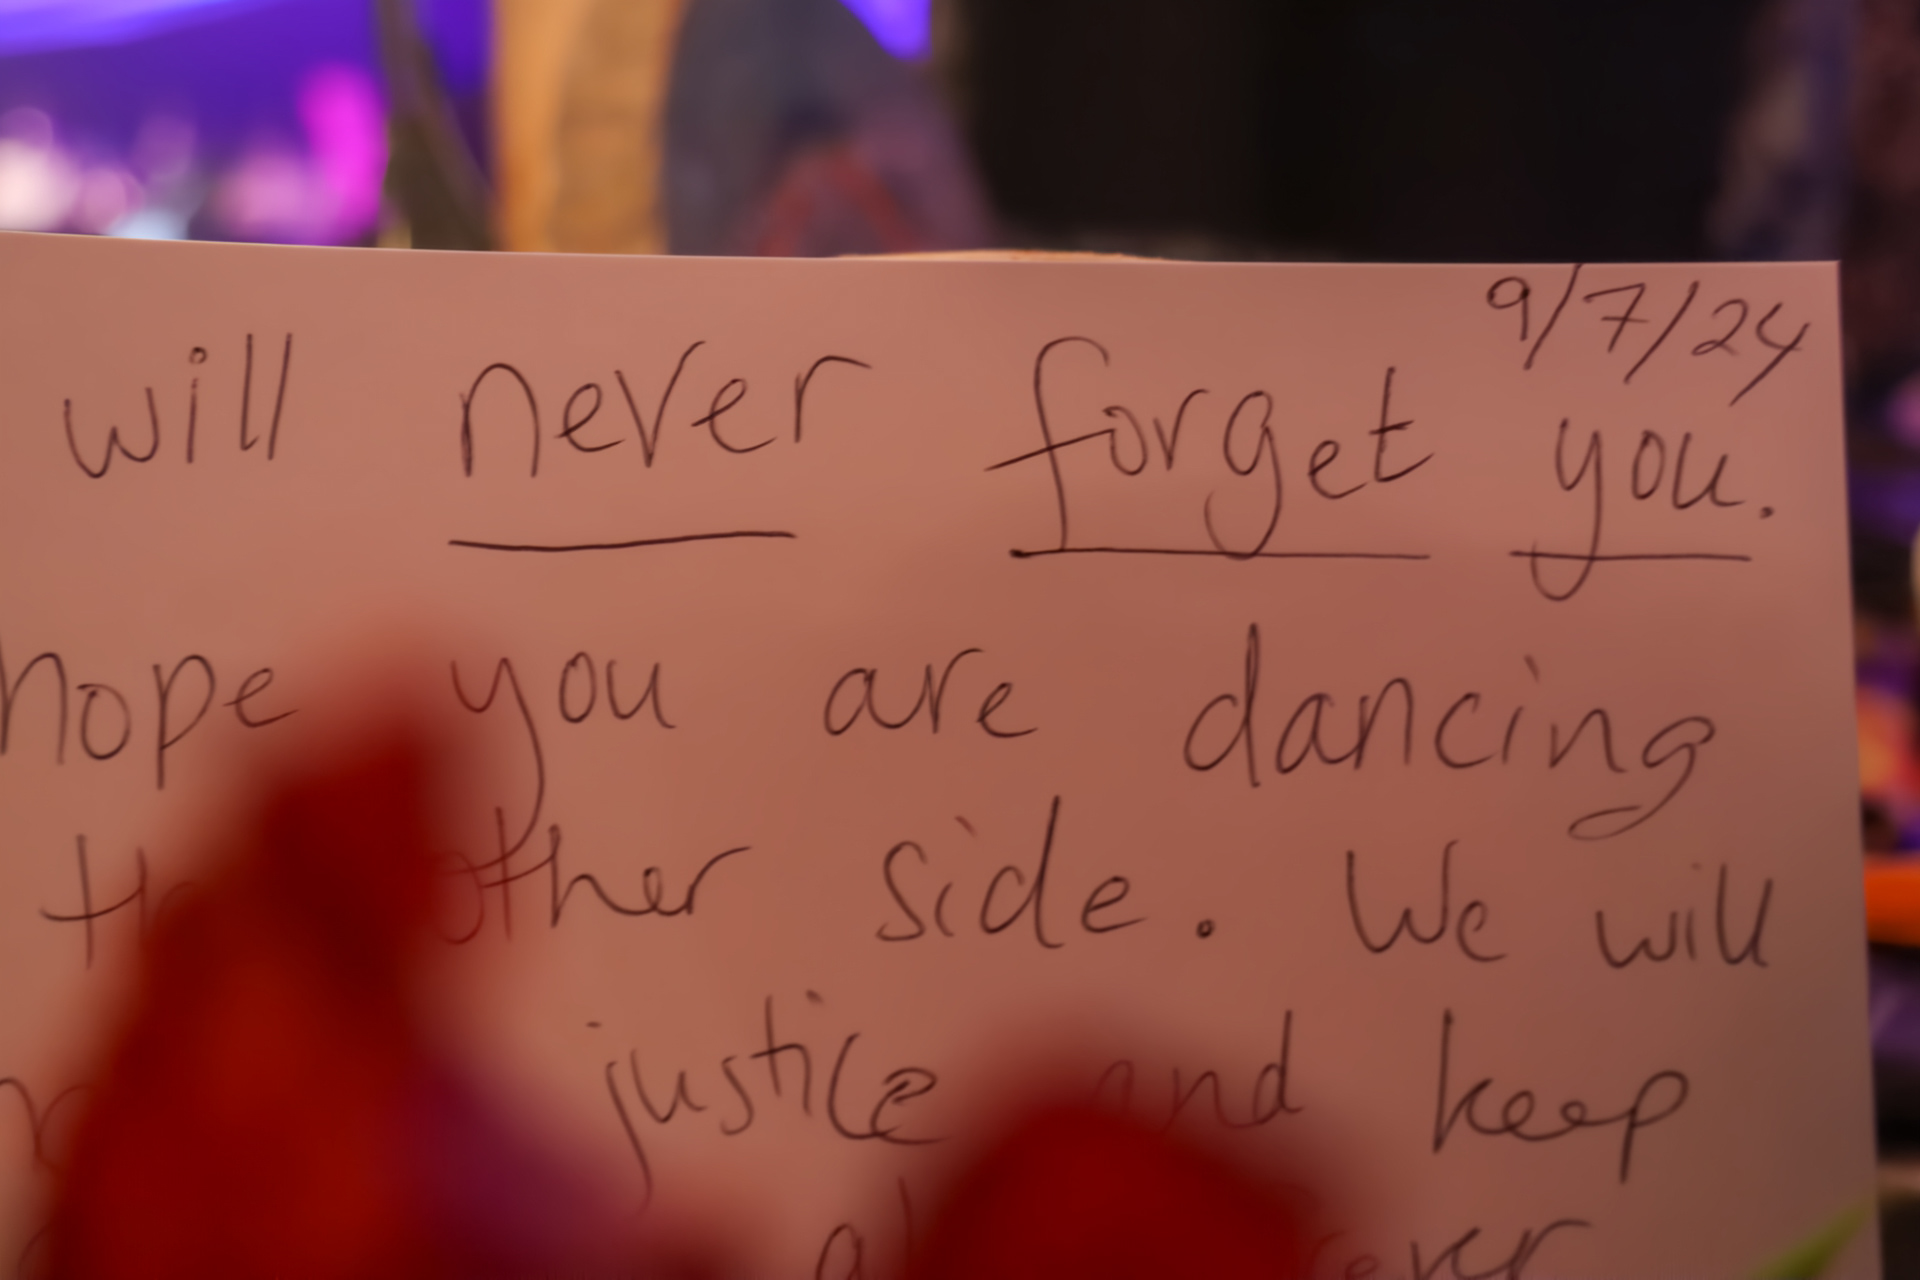 9/7/24
will never forget you.
hope you are dancing
other side. We will
justice and keep